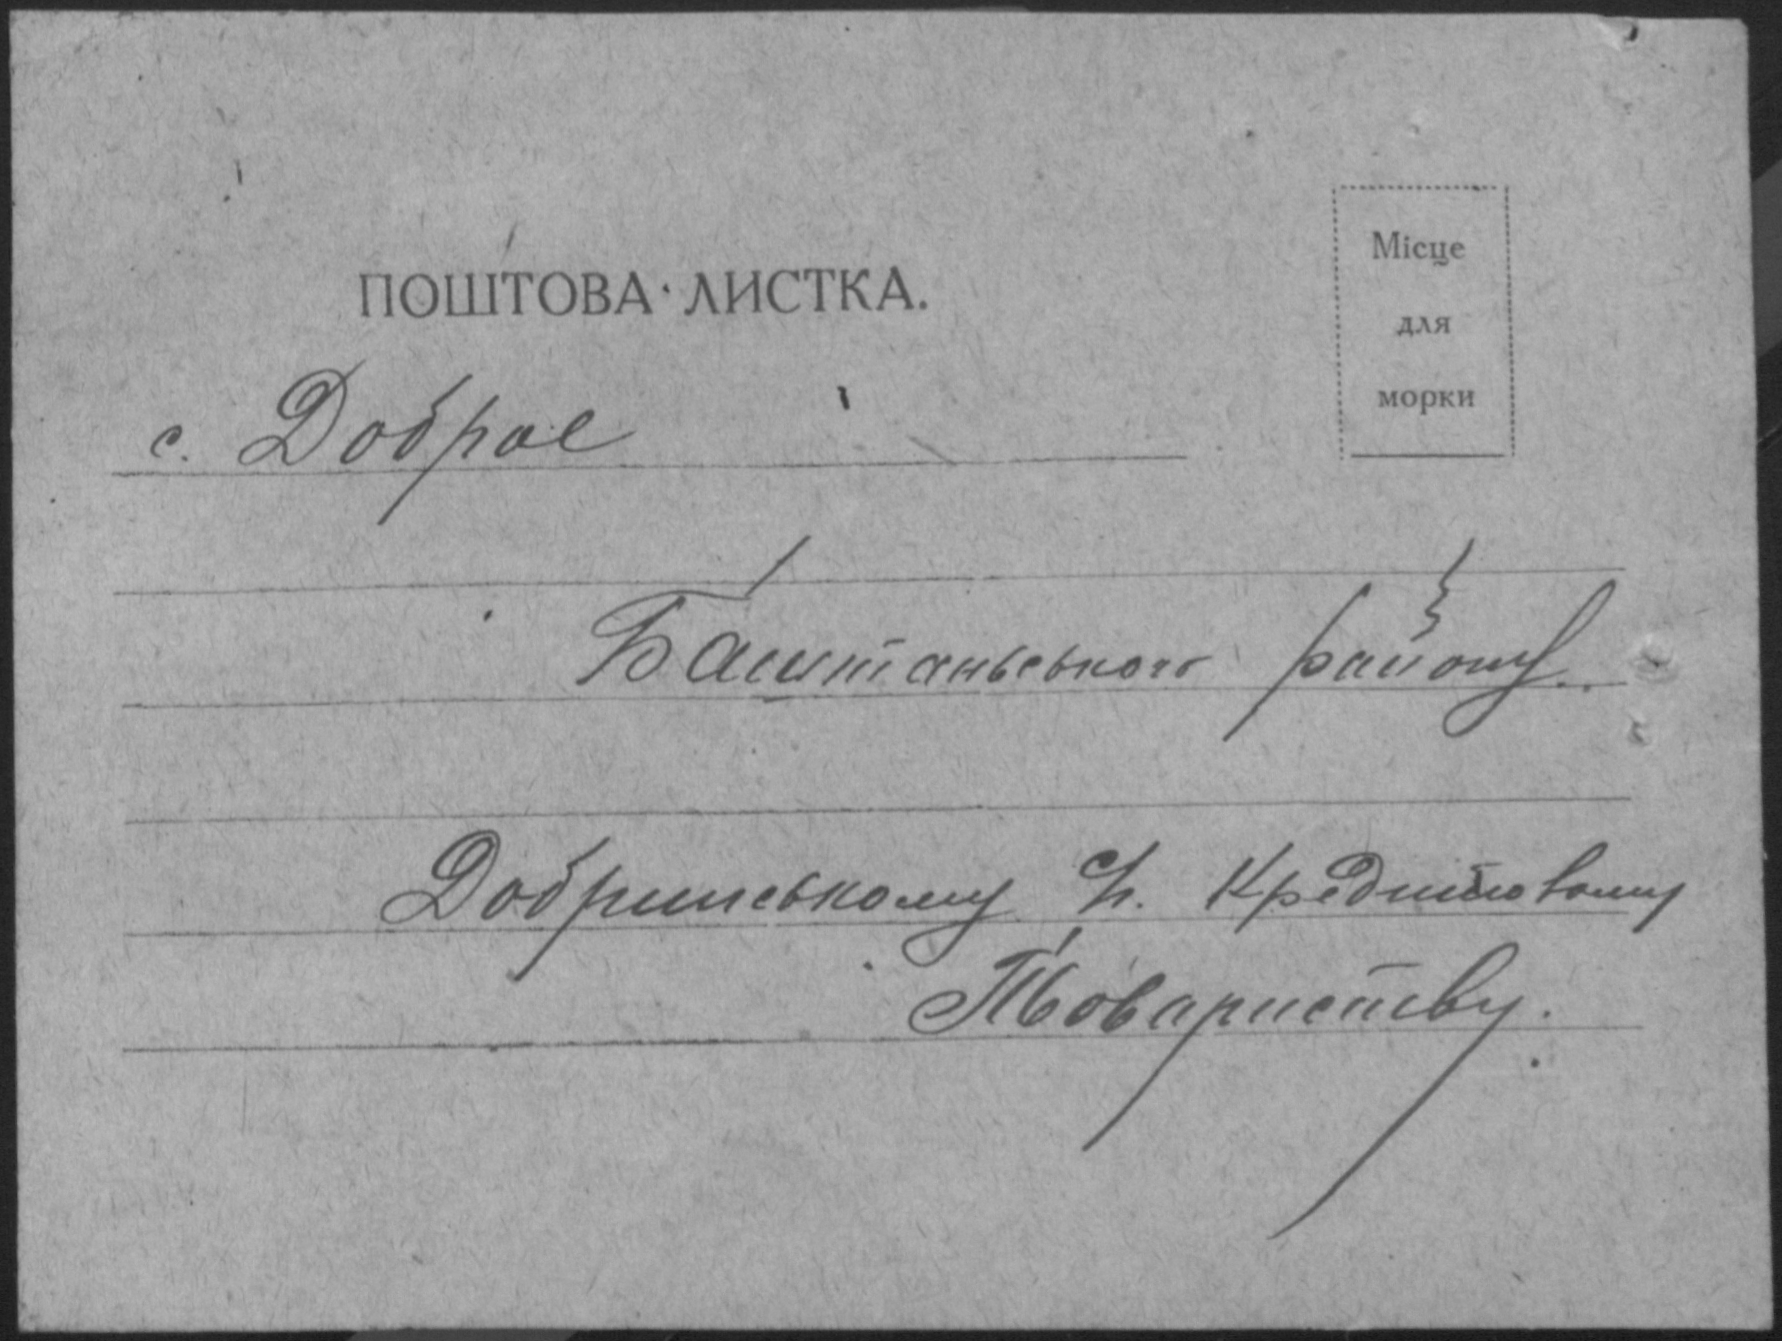 ПОШТОВА ЛИСТКА.
Місце
для
морки
с. Доброе
Баштанського району.
Добринському С. Кредитовому
Товариству.